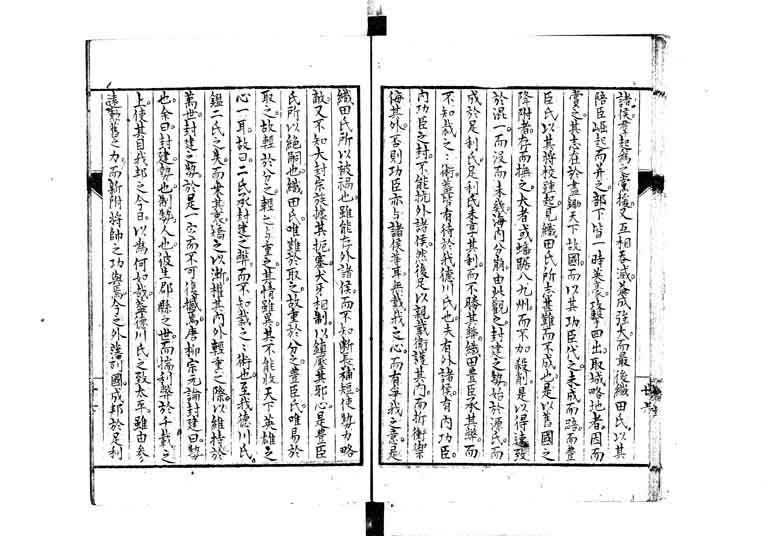 諸侯。羣起為之黨援。又互相吞滅。益成強大。而最後織田氏。以其
陪臣崛起而并之。部下皆一時英豪。攻擊四出。取城略地者。因而
賞之。其志在於盡鋤天下故國。而以其功臣代之。未成而踣。而豊
臣氏以其將校驟起。見織田氏所志甚難而不成也。是以舊國之
降附者。存而撫之。大者或蟠踞八九州。而不加殺削。是以得速致
於混一。而沒而未幾。海内分崩。由此觀之。封建之勢。始於源氏。而
成於足利氏。足利氏未享其利。而不勝其弊。織田豊臣承其弊。而
不知裁之之術。蓋皆有待於我德川氏也。夫有外諸侯。有内功臣。
内功臣之封。不能抗外諸侯。然後足以親戴衛護其内。而折衝禦
侮其外。否則功臣亦与諸侯華耳。無戴我之心。而有与我之意。是
織田氏所以被禍也。雖能去外諸侯。而不知斷長補短。使勢力略
敵。又不知大封宗族。據其扼塞。犬牙相制。以鎮壓其邪心。是豊臣
氏所以絕嗣也。織田氏唯難於取之。故重於分之。豊臣氏唯易於
取之。故輕於分之。輕之与重之。其情雖異。其不能收天下英雄之
心一耳。故曰。二氏承封建之弊。而不知裁之之術也。至我德川氏。
鑑二氏之失。而案其衷。矯之以漸。權其内外輕重之際。以維持於
萬世。封建之勢。於是一定。而不可復撼焉。唐柳宗元論封建曰。勢
也。余曰。封建勢也。制勢人也。彼生郡縣之世。而揣利弊於千載之
上。使其目我邦之今日。以為何如哉。蓋德川氏之致太平。雖由參
遠勲舊之力。而新附將帥之功与焉。今之外藩列國。成邦於足利